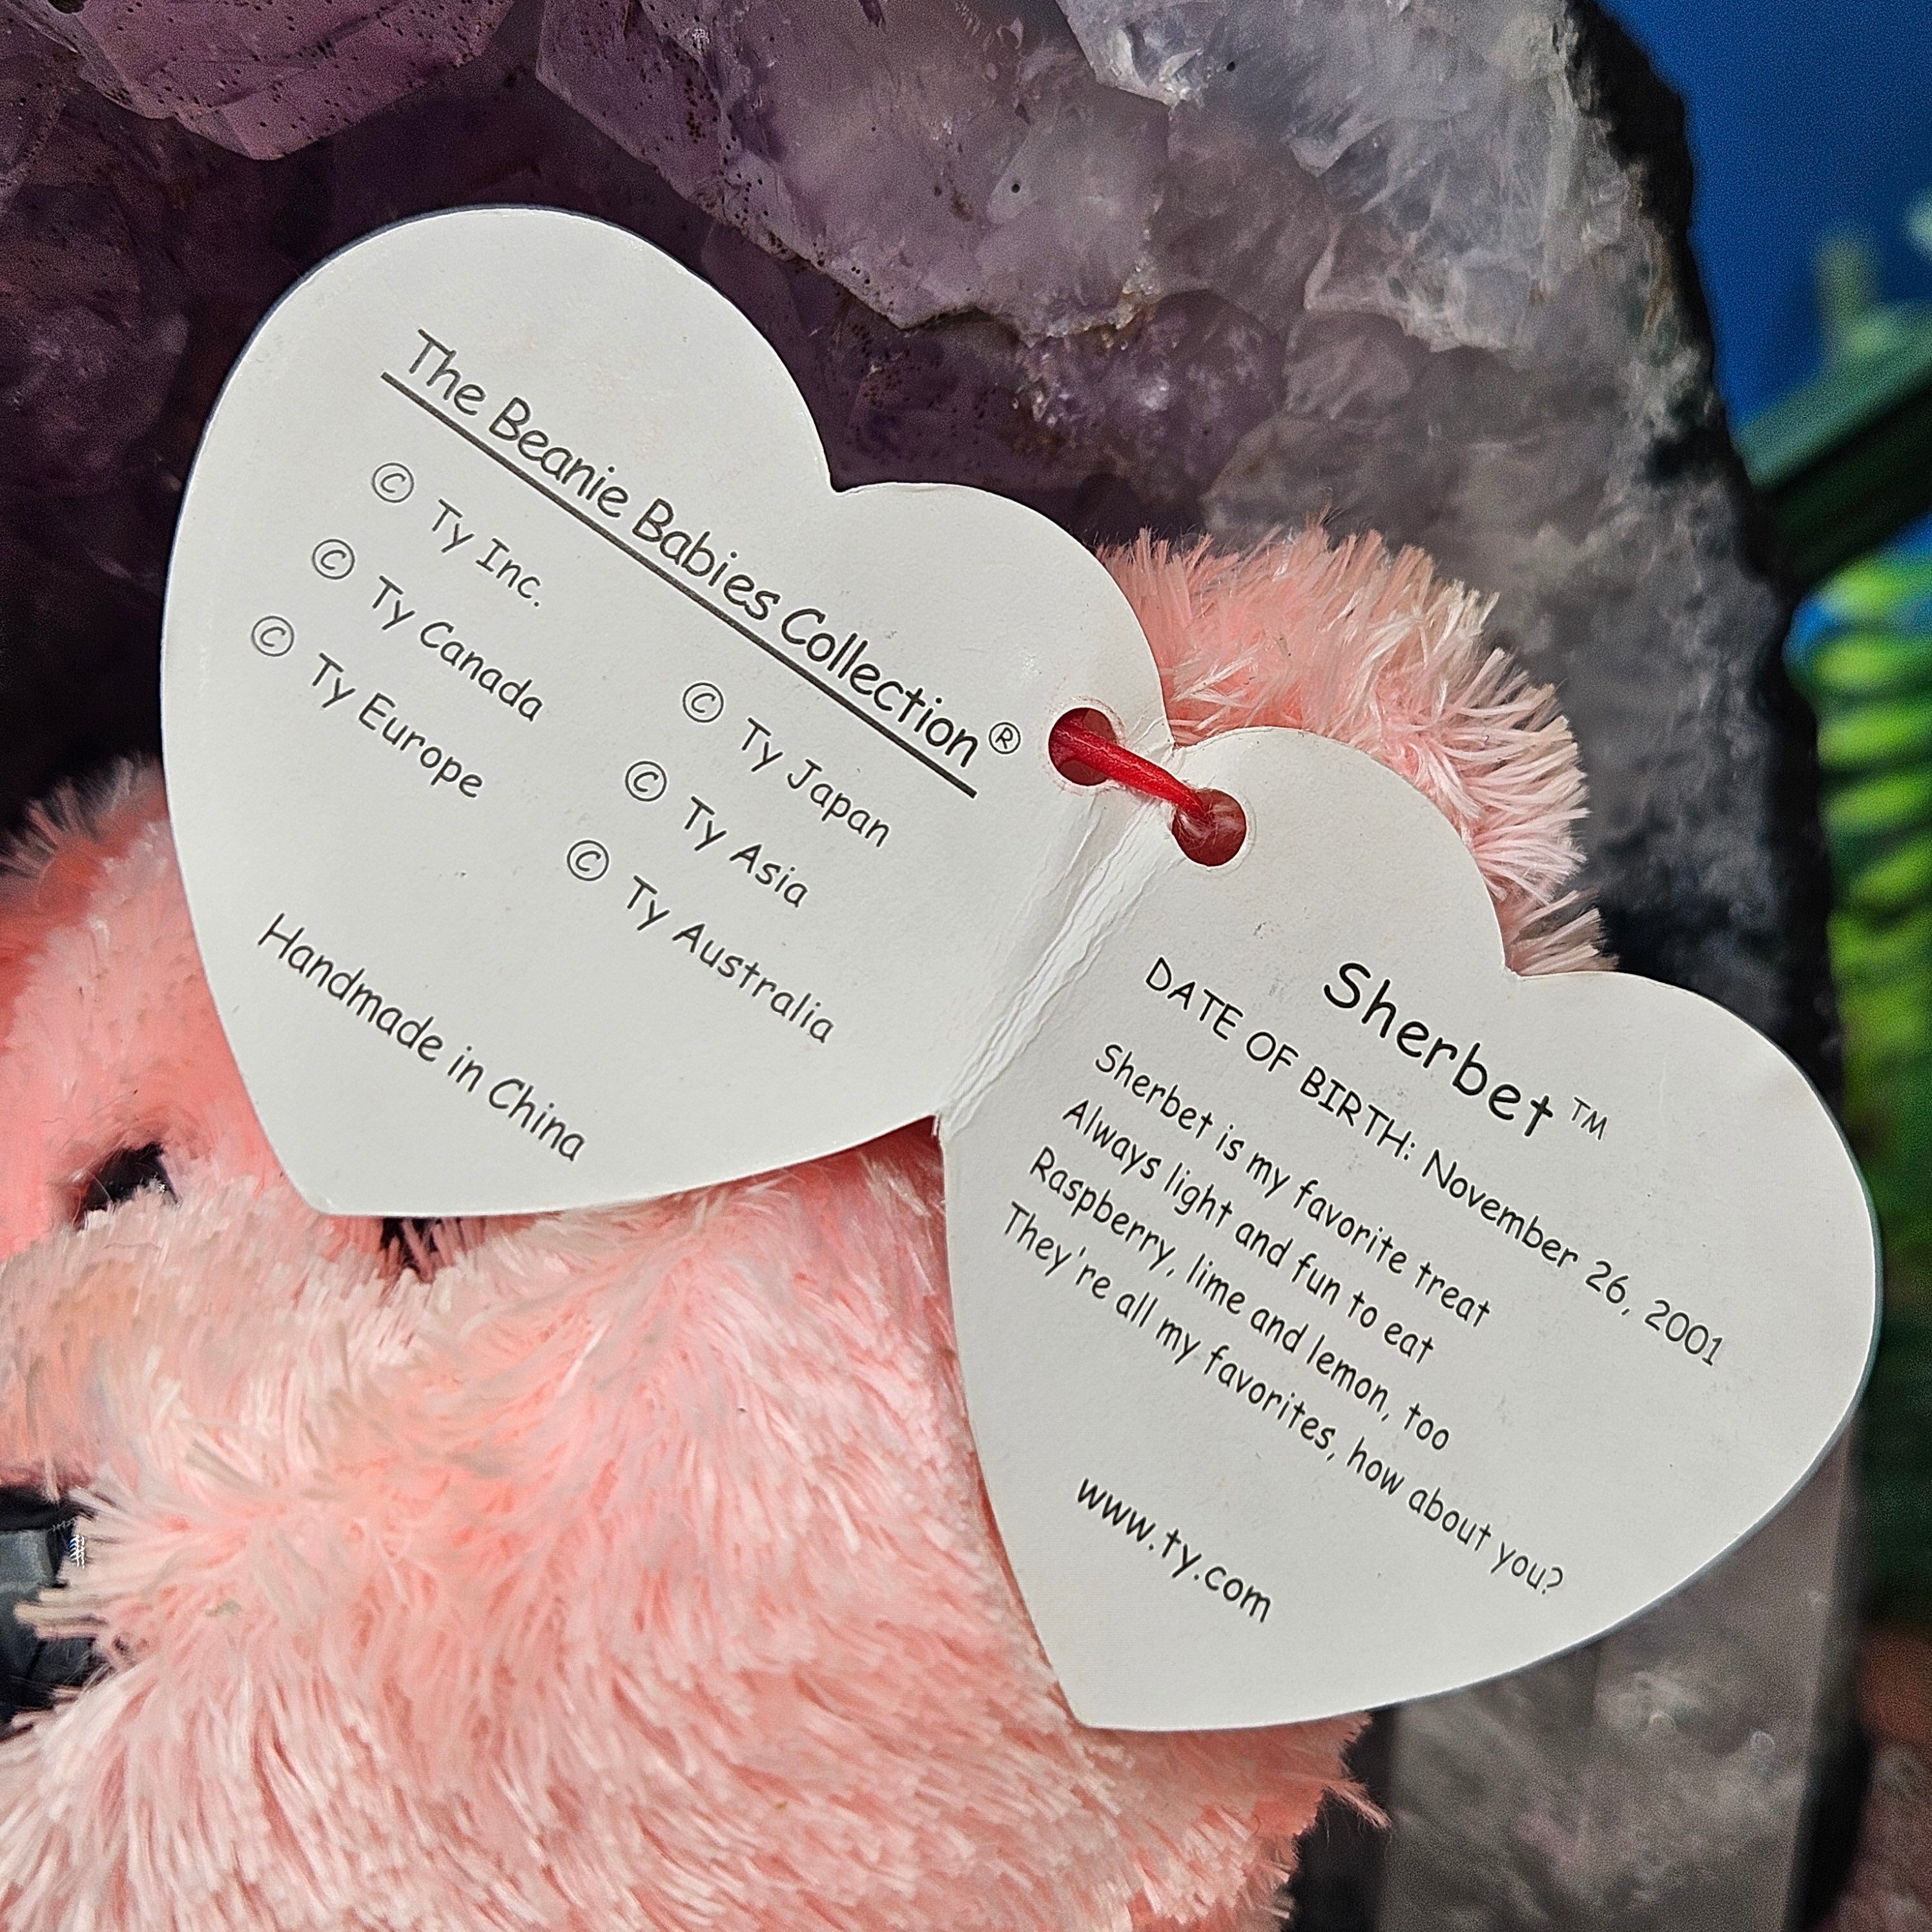 The Beanie Babies Collection®
© Ty Inc.
© Ty Canada
© Ty Europe
© Ty Japan
© Ty Asia
© Ty Australia
Handmade in China
Sherbet™
DATE OF BIRTH: November 26, 2001
Sherbet is my favorite treat
Always light and fun to eat
Raspberry, lime and lemon, too
They're all my favorites, how about you?
www.ty.com